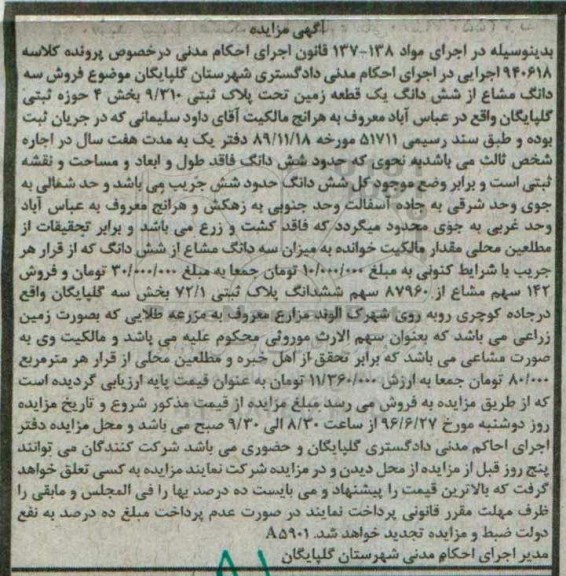 آگهی مزایده
بدینوسیله در اجرای مواد ۱۳۸-۱۳۷ قانون اجرای احکام مدنی درخصوص پرونده کلاسه
۹۴۰۶۱۸ اجرایی در اجرای احکام مدنی دادگستری شهرستان گلپایگان موضوع فروش سه
دانگ مشاع از شش دانگ یک قطعه زمین تحت پلاک ثبتی ۹/۳۱۰ بخش ۴ حوزه ثبتی
گلپایگان واقع در عباس آباد معروف به هرانج مالکیت آقای داود سلیمانی که در جریان ثبت
بوده و طبق سند رسمیی ۵۱۷۱۱ مورخه ۸۹/۱۱/۱۸ دفتر یک به مدت هفت سال در اجاره
شخص ثالث می باشدبه نحوی که حدود شش دانگ فاقد طول و ابعاد و مساحت و نقشه
ثبتی است و برابر وضع موجود کل شش دانگ حدود شش جریب می باشد و حد شمالی به
جوی وحد شرقی به جاده آسفالت وحد جنوبی به زهکش و هرانج معروف به عباس آباد
وحد غربی به جوی محدود میگردد که فاقد کشت و زرع می باشد و برابر تحقیقات از
مطلعین محلی مقدار مالکیت خوانده به میزان سه دانگ مشاع از شش دانگ که از قرار هر
جریب با شرایط کنونی به مبلغ ۱۰/۰۰۰/۰۰۰ تومان جمعا به مبلغ ۳۰/۰۰۰/۰۰۰ تومان و فروش
۱۴۲ سهم مشاع از ۸۷۹۶۰ سهم ششدانگ پلاک ثبتی ۷۲/۱ بخش سه گلپایگان واقع
درجاده کوچری روبه روی شهرک الوند مزارع معروف به مزرعه طلایی که بصورت زمین
زراعی می باشد که بعنوان سهم الارث موروثی محکوم علیه می باشد و مالکیت وی به
صورت مشاعی می باشد که برابر تحقق از اهل خبره و مطلعین محلی از قرار هر مترمربع
۸۰/۰۰۰ تومان جمعا به ارزش ۱۱/۳۶۰/۰۰۰ تومان به عنوان قیمت پایه ارزیابی گردیده است
که از طریق مزایده به فروش می رسد مبلغ مزایده از قیمت مذکور شروع و تاریخ مزایده
روز دوشنبه مورخ ۹۶/۶/۲۷ از ساعت ۸/۳۰ الی ۹/۳۰ صبح می باشد و محل مزایده دفتر
اجرای احاکم مدنی دادگستری گلپایگان و حضوری می باشد شرکت کنندگان می توانند
پنج روز قبل از مزایده از محل دیدن و در مزایده شرکت نمایند مزایده به کسی تعلق خواهد
گرفت که بالاترین قیمت را پیشنهاد و می بایست ده درصد بها را فی المجلس و مابقی را
ظرف مهلت مقرر قانونی پرداخت نمایند در صورت عدم پرداخت مبلغ ده درصد به نفع
دولت ضبط و مزایده تجدید خواهد شد. A۵۹۰۱
مدیر اجرای احکام مدنی شهرستان گلپایگان